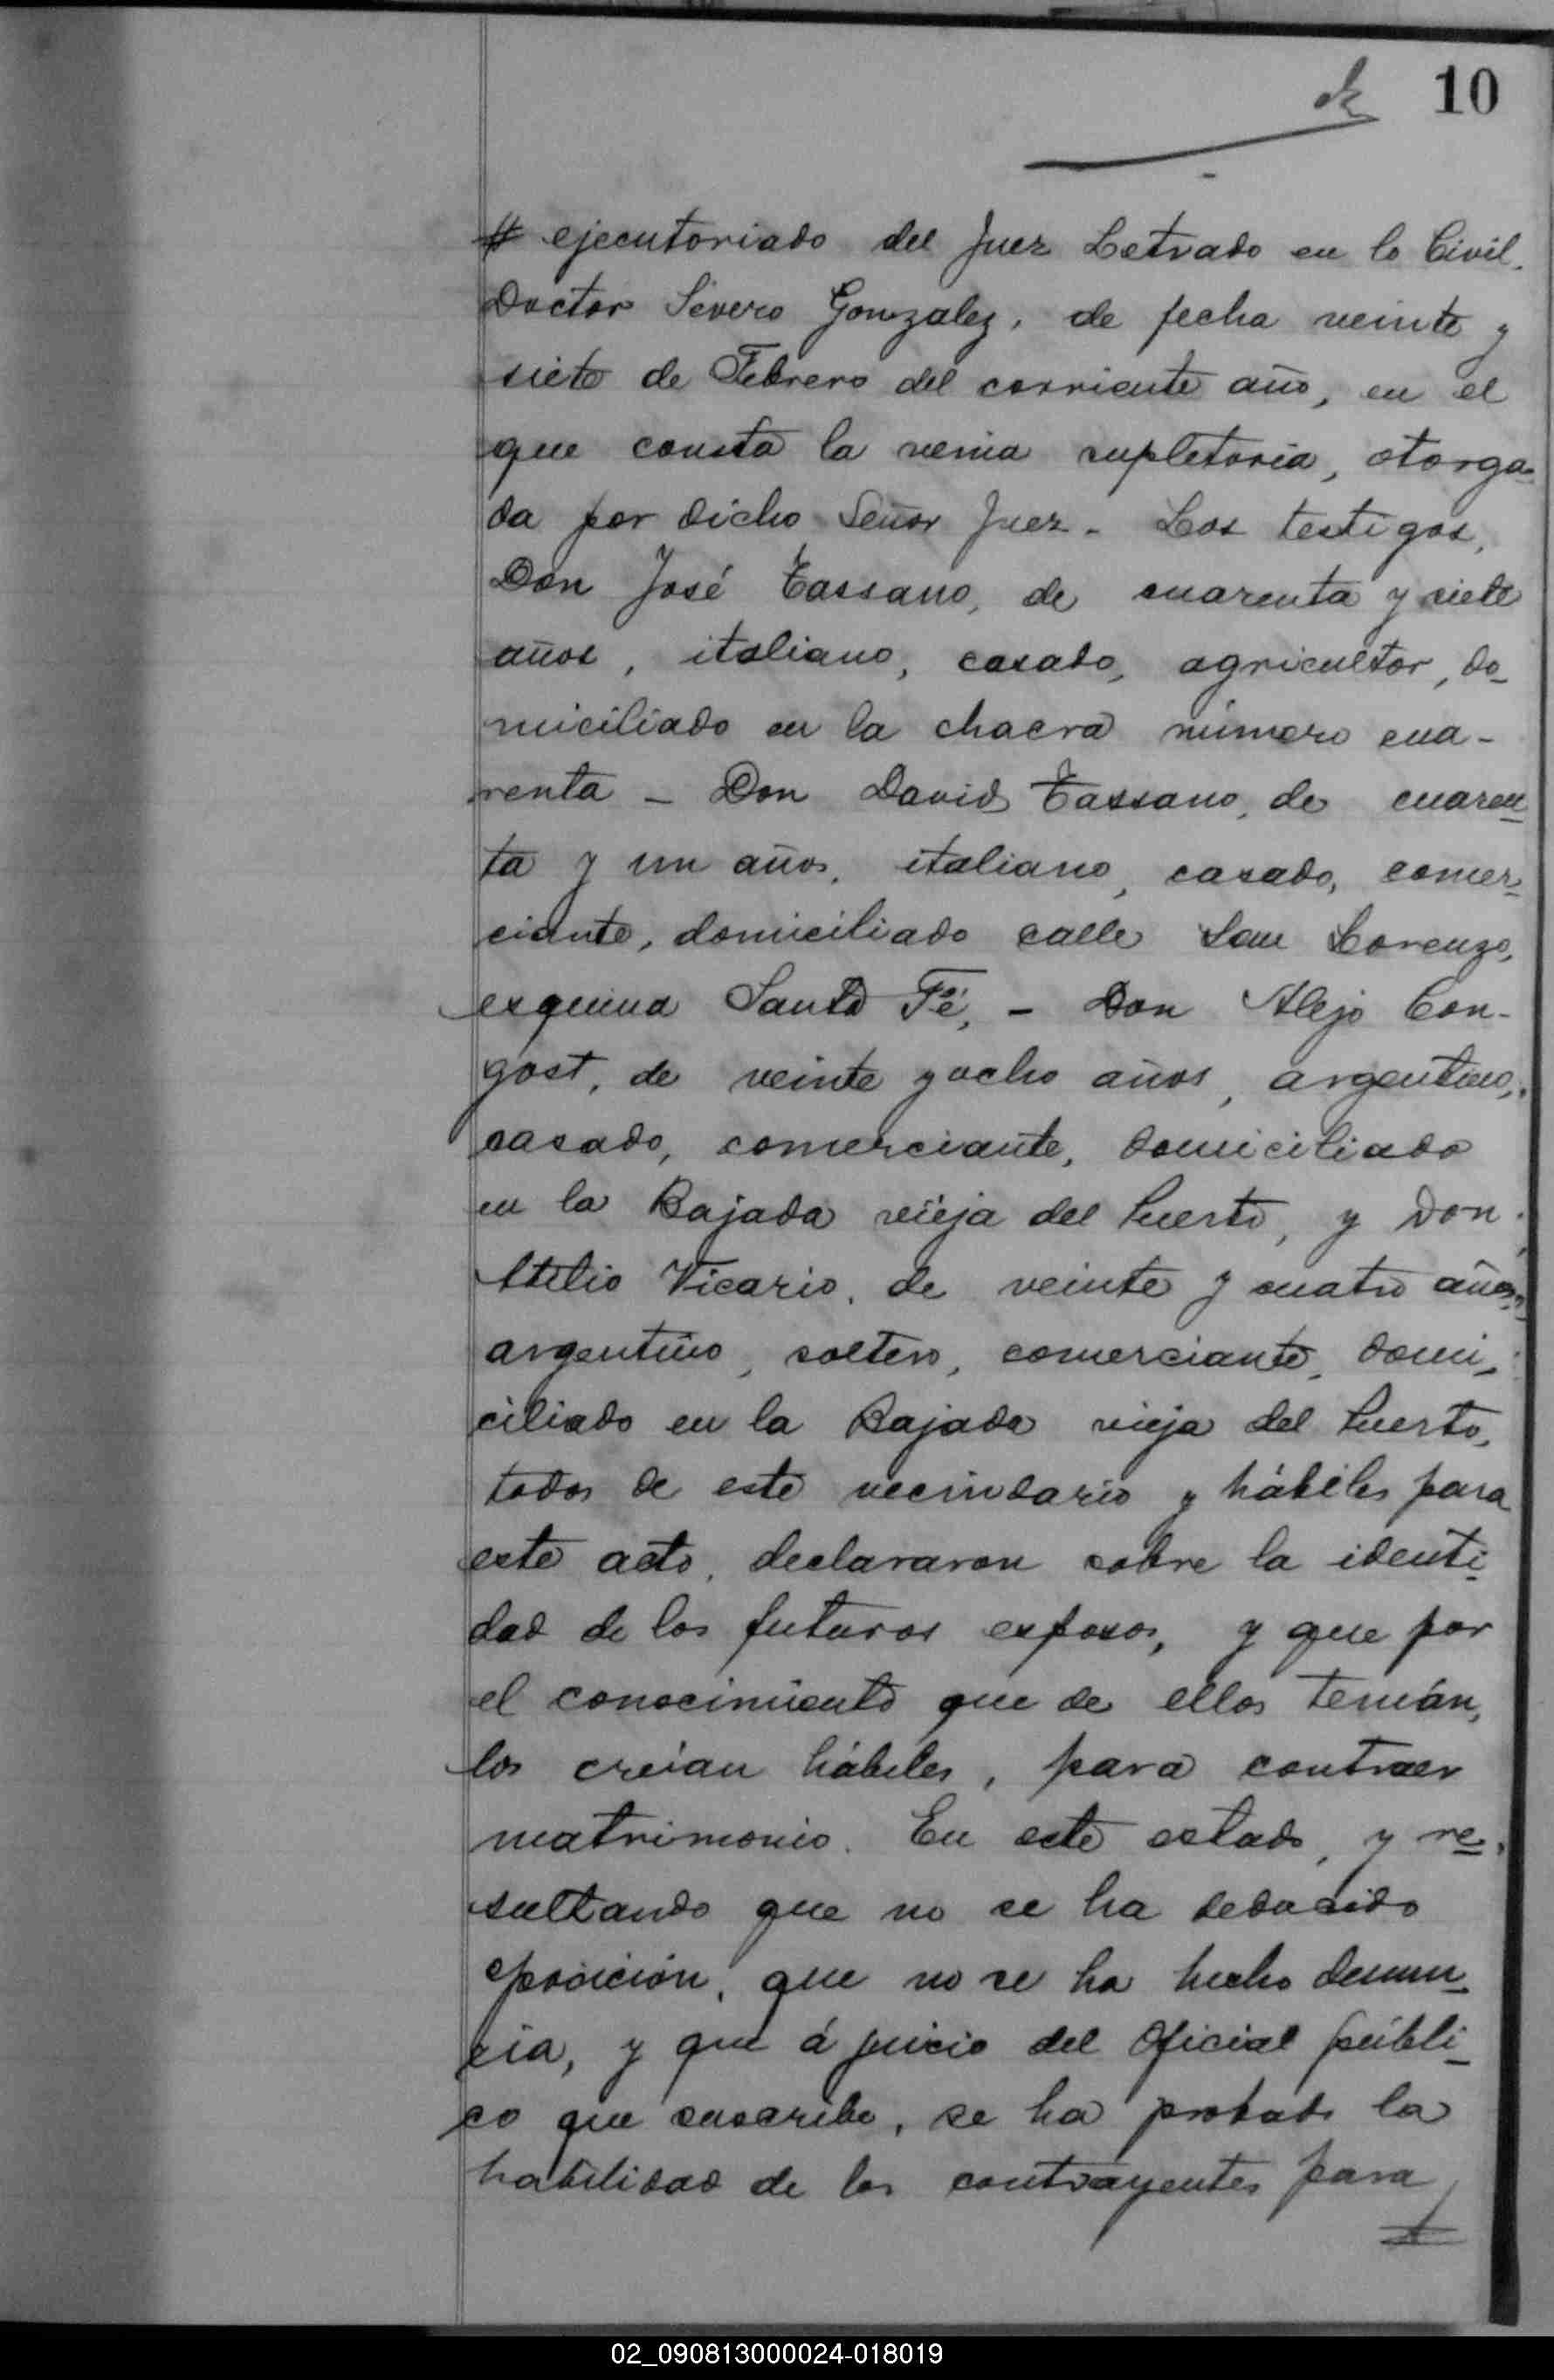 10
# ejecutoriado del Juez Letrado en lo Civil.
Doctor Severo Gonzalez, de fecha veinte y
siete de Febrero del corriente año, en el
que consta la venia supletoria, otorga-
da por dicho Señor Juez - Los testigos,
Don José Tassano, de cuarenta y siete
años, italiano, casado, agricultor, do-
miciliado en la chacra número cua-
renta - Don David Tassano, de cuaren-
ta y un años, italiano, casado, comer-
ciante, domiciliado calle San Lorenzo,
esquina Santa Fé, - Don Alejo Con-
gost, de veinte y ocho años, argentino,
casado, comerciante, domiciliado
en la Bajada vieja del Puerto, y Don
Atilio Vicario, de veinte y cuatro años,
argentino, soltero, comerciante, domi-
ciliado en la Bajada vieja del Puerto,
todos de este vecindario y hábiles para
este acto, declararon sobre la identi-
dad de los futuros esposos, y que por
el conocimiento que de ellos tenían,
los creían hábiles, para contraer
matrimonio. En este estado, y re-
sultando que no se ha deducido
oposición, que no se ha hecho denun-
cia, y que á juicio del Oficial públi-
co que suscribe, se ha probado la
habilidad de los contrayentes para
02_090813000024-018019